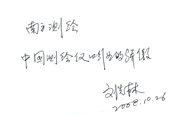 南方测绘
中国测绘仪器的骄傲
刘先林
2008.10.26